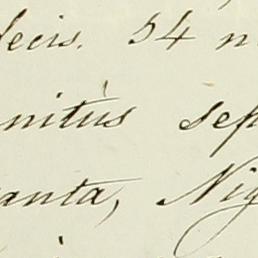 fecis. 54 n
nitùs sep
anta, Nig